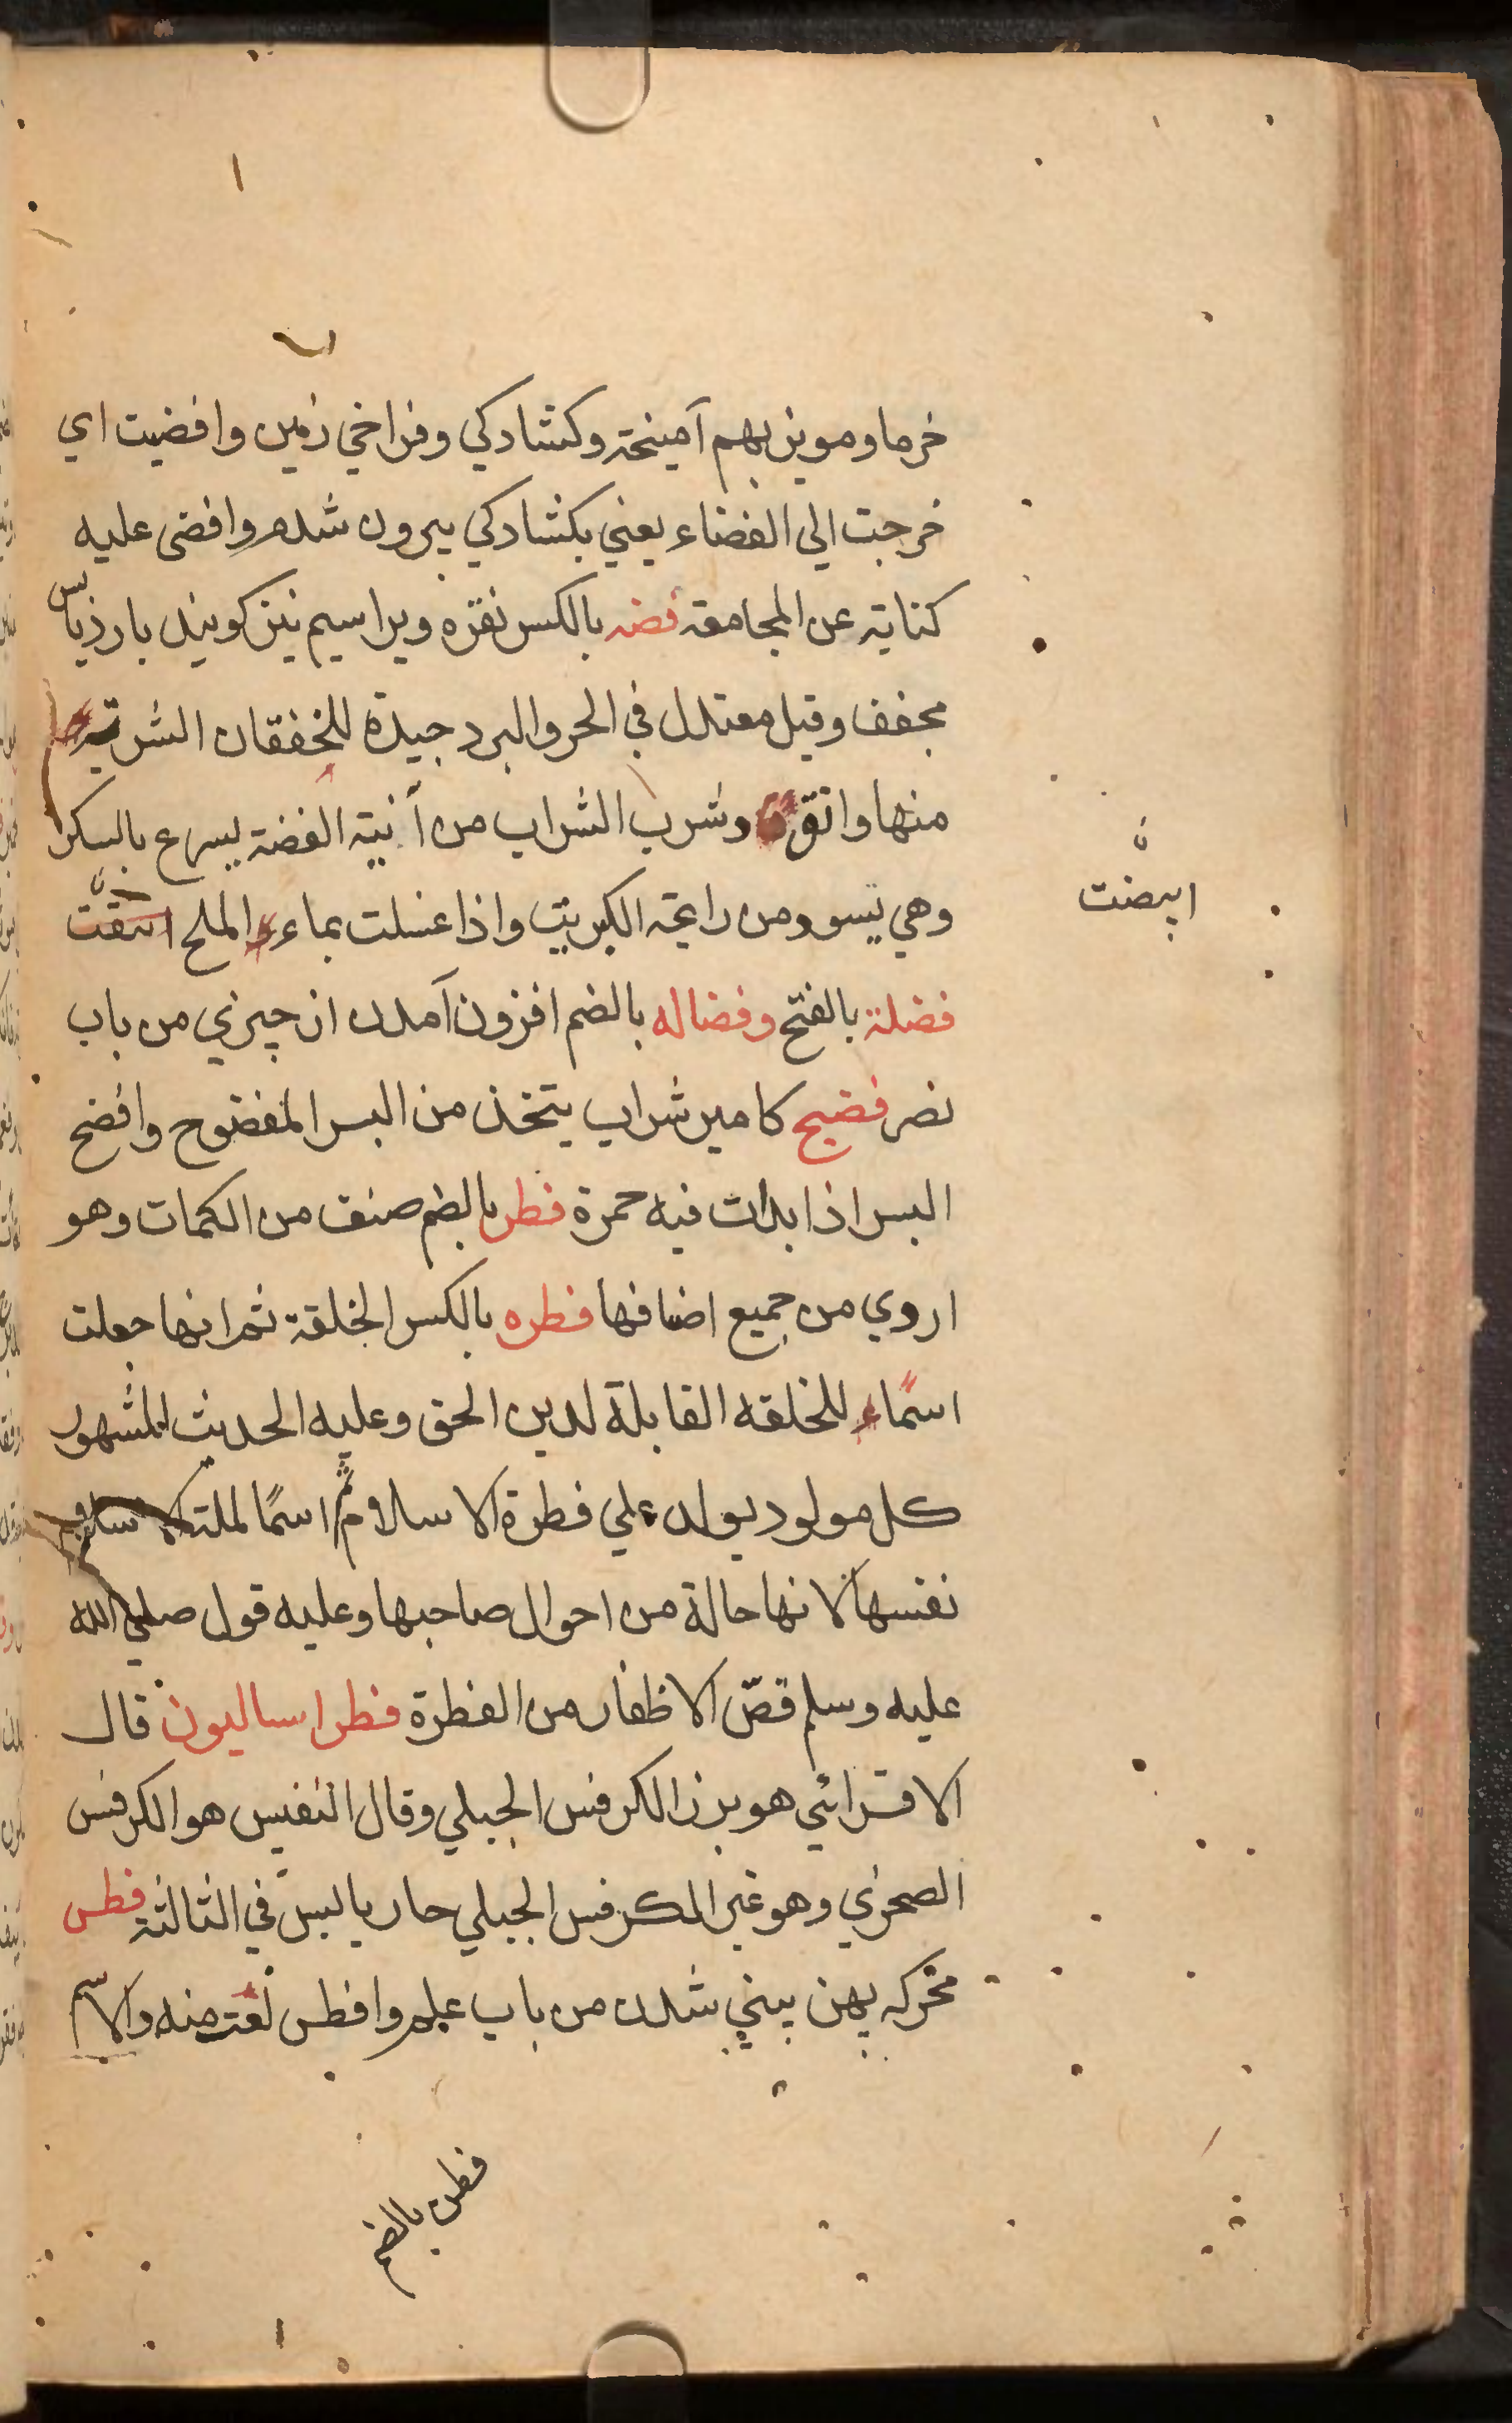 خرما و مويز بهم آميخته و كشادكي و فراخي زمين وافضيت اي
خرجت الي الفضاء يعني بكشادكي بيرون شدم وافضى عليه
كناية عن المجامعة فضه بالكسر نقره ويرا سيم نيز كويند بارد يابس
مجفف وقيل معتدل في الحر والبرد جيدة للخفقان الشربة
منها دانق وشرب الشراب من آنية الفضة يسرع بالسكر
وهي تسود من رايحة الكبريت واذا غسلت بماء الملح
ابيضت
فضلة بالفتح وفضاله بالضم افزون آمدن از چيزي من باب
نصر فضيح كامير شراب يتخذ من البسر المفضوح وافضح
البسر اذا بدات فيه حمرة فطر بالضم صنف من الكمات وهو
اروي من جميع اضافها فطره بالكسر الخلقة ثم انها جعلت
اسمًا للخلقه القابلة لدين الحق وعليه الحديث المشهور
كل مولود يولد علي فطرة الاسلام ثم اسمًا لملة الاسلام
نفسها لانها حالة من احوال صاحبها وعليه قول صلي الله
عليه وسلم قصّ الاظفار من الفطرة فطراساليون قال
الاقسرائي هو بزر الكرفس الجبلي وقال النفيس هو الكرفس
الصخري وهو غير الكرفس الجبلي حار يابس في الثالثة فطس
محركه پهن بيني شدن من باب علم وافطس نعت منه والاسم
فطس بالضم